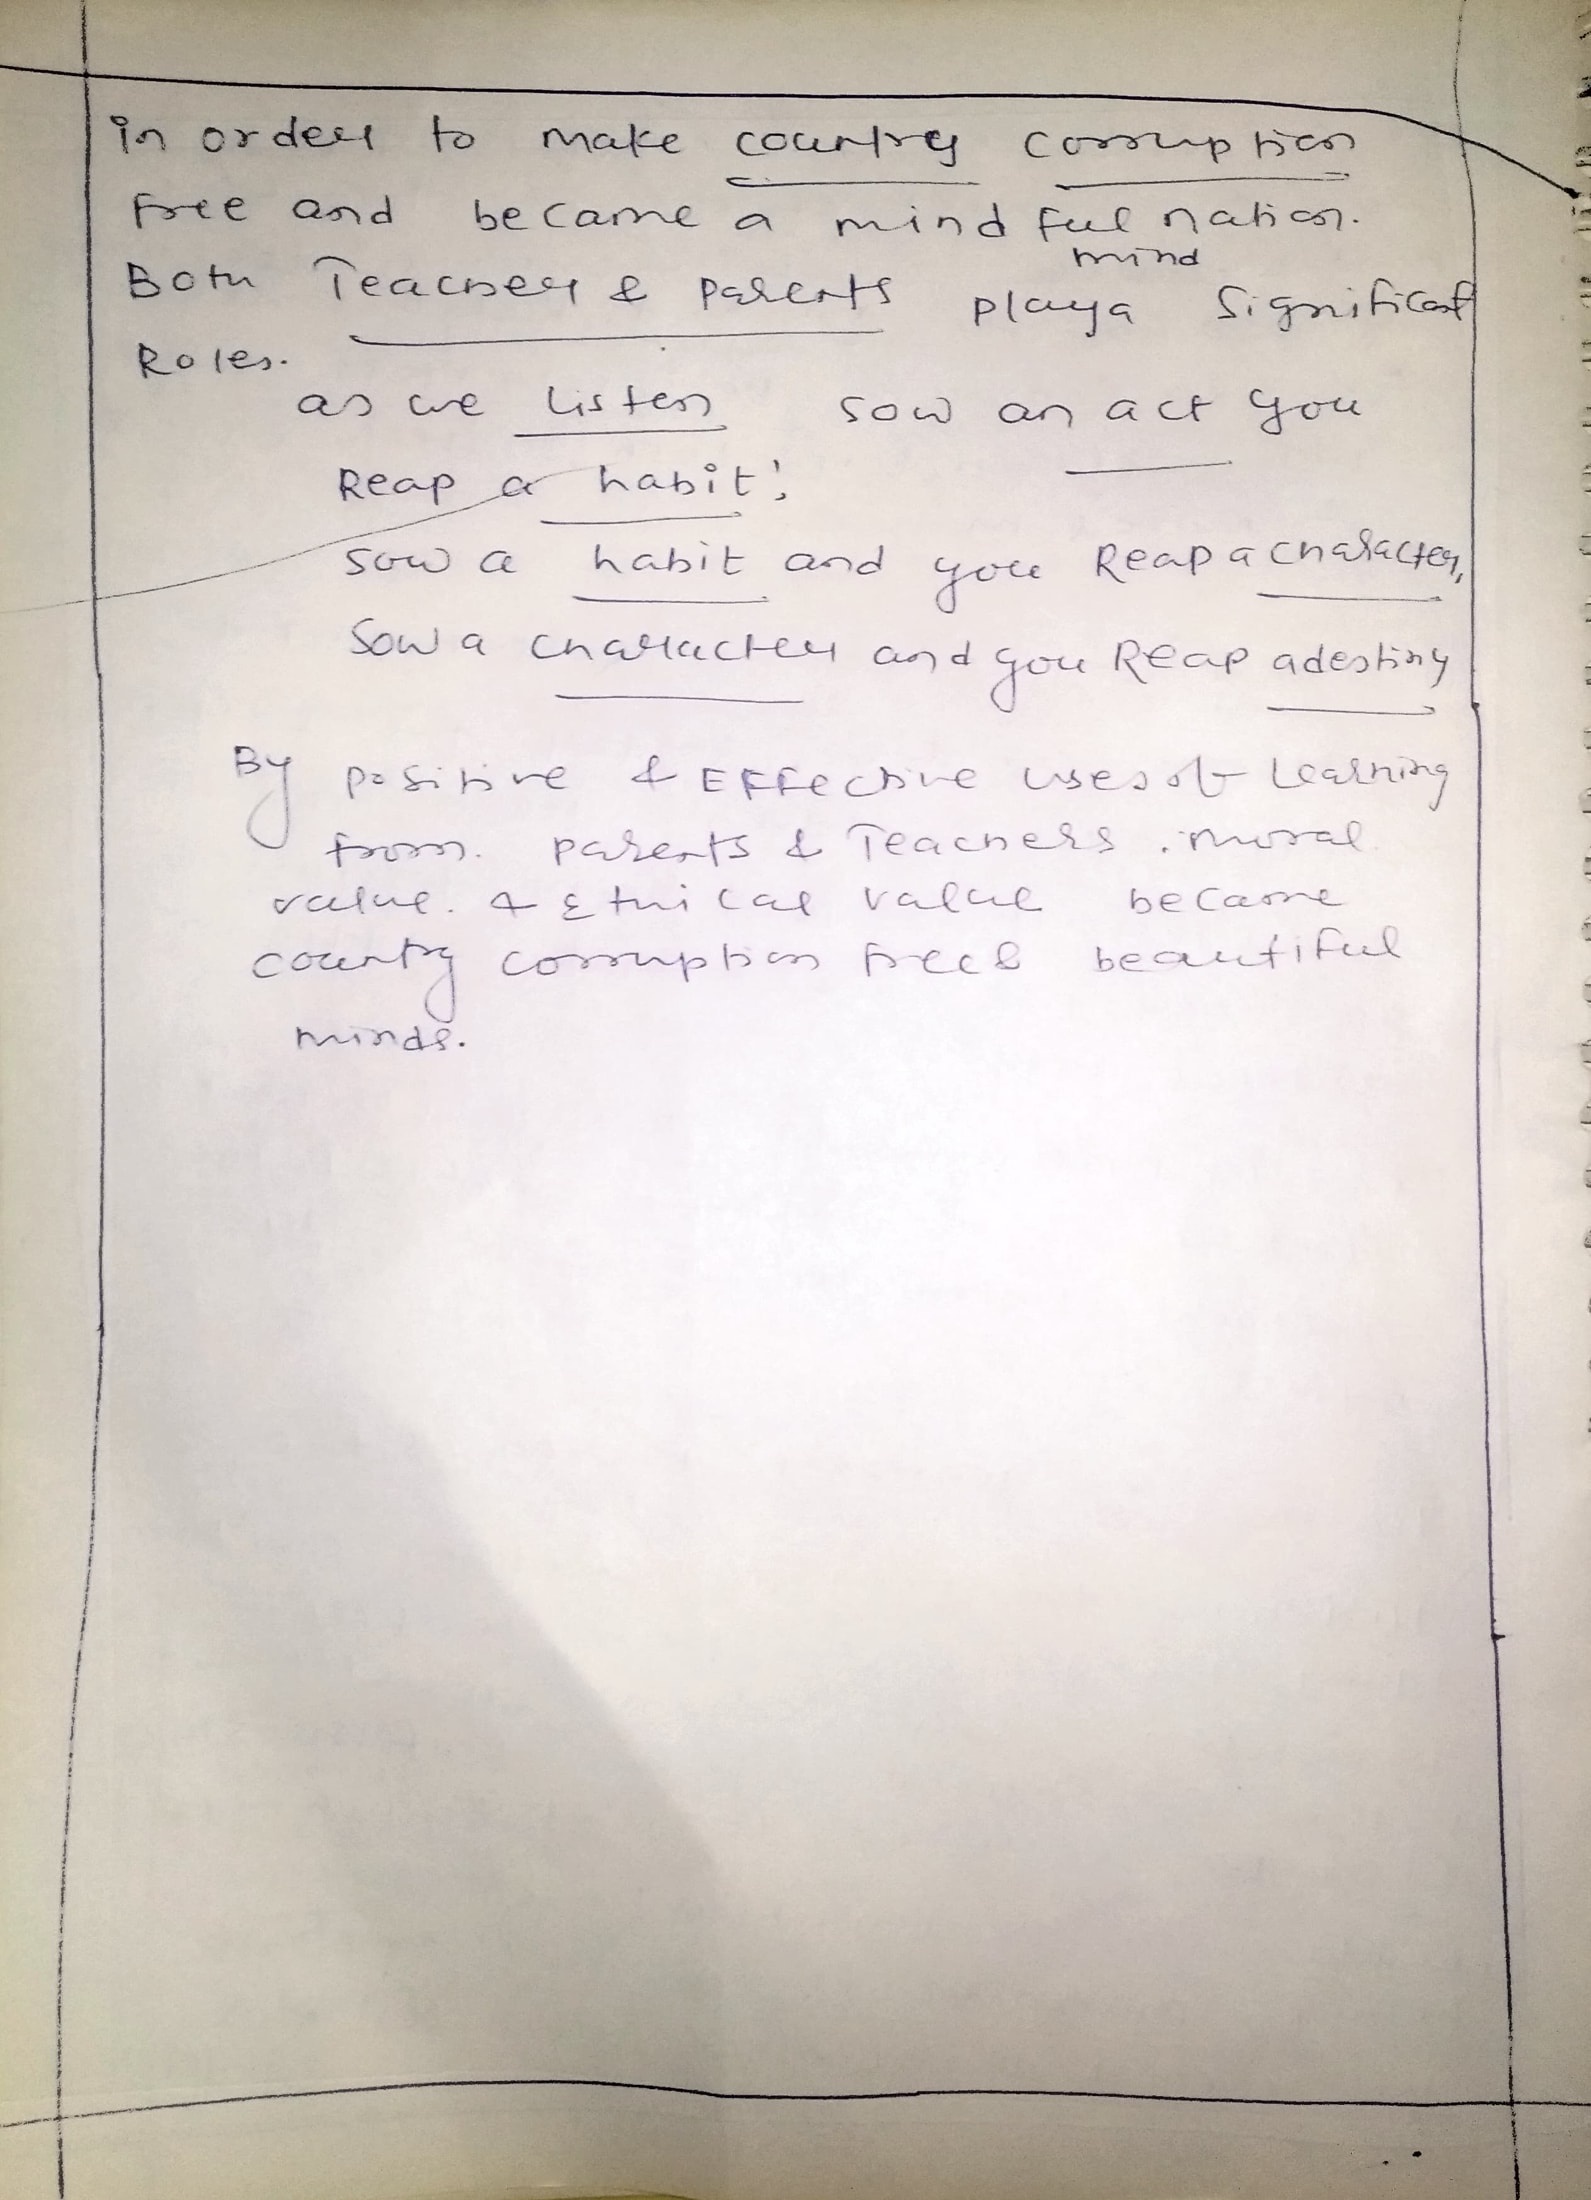 in order to make country corruption
free and became a mindful nation.
mind
Both Teacher & Parents playa Significant
Roles.
as we listen sow an act you
Reap a habit;
sow a habit and you Reap a character,
Sow a character and you Reap adestiny
By positive & Effective uses of Learning
from. parents & Teachers . moral
value. & Ethical value became
country corruption free & beautiful
minds.